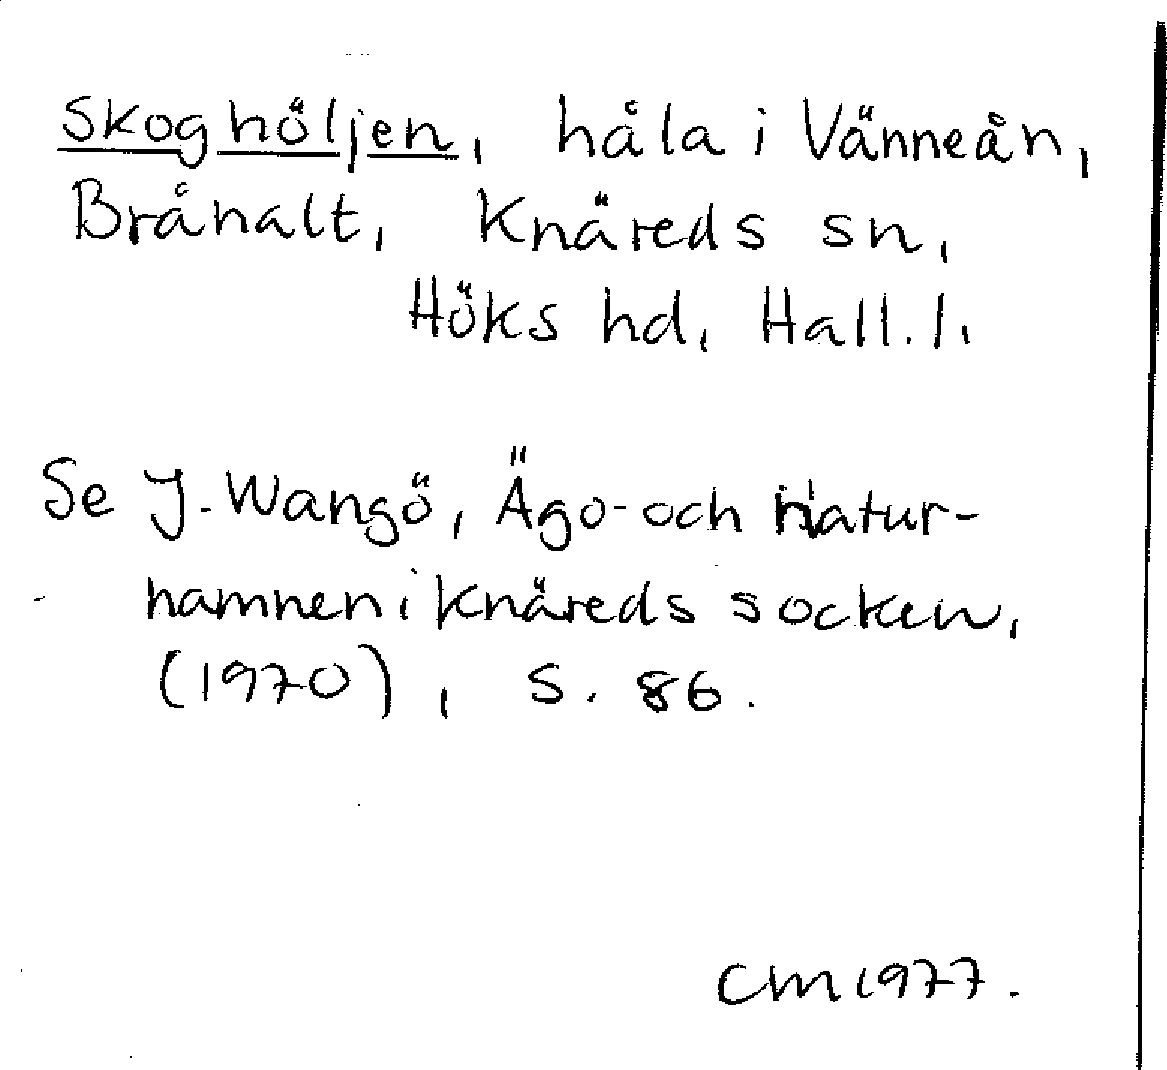 Skoghöljen, håla i Vänneån,
Bråhalt, Knäreds sn,
Höks hd, Hall. l.
Se J. Wangö, Ägo- och natur-
hamnen i Knäreds socken,
(1970), s. 86.
CM 1977.